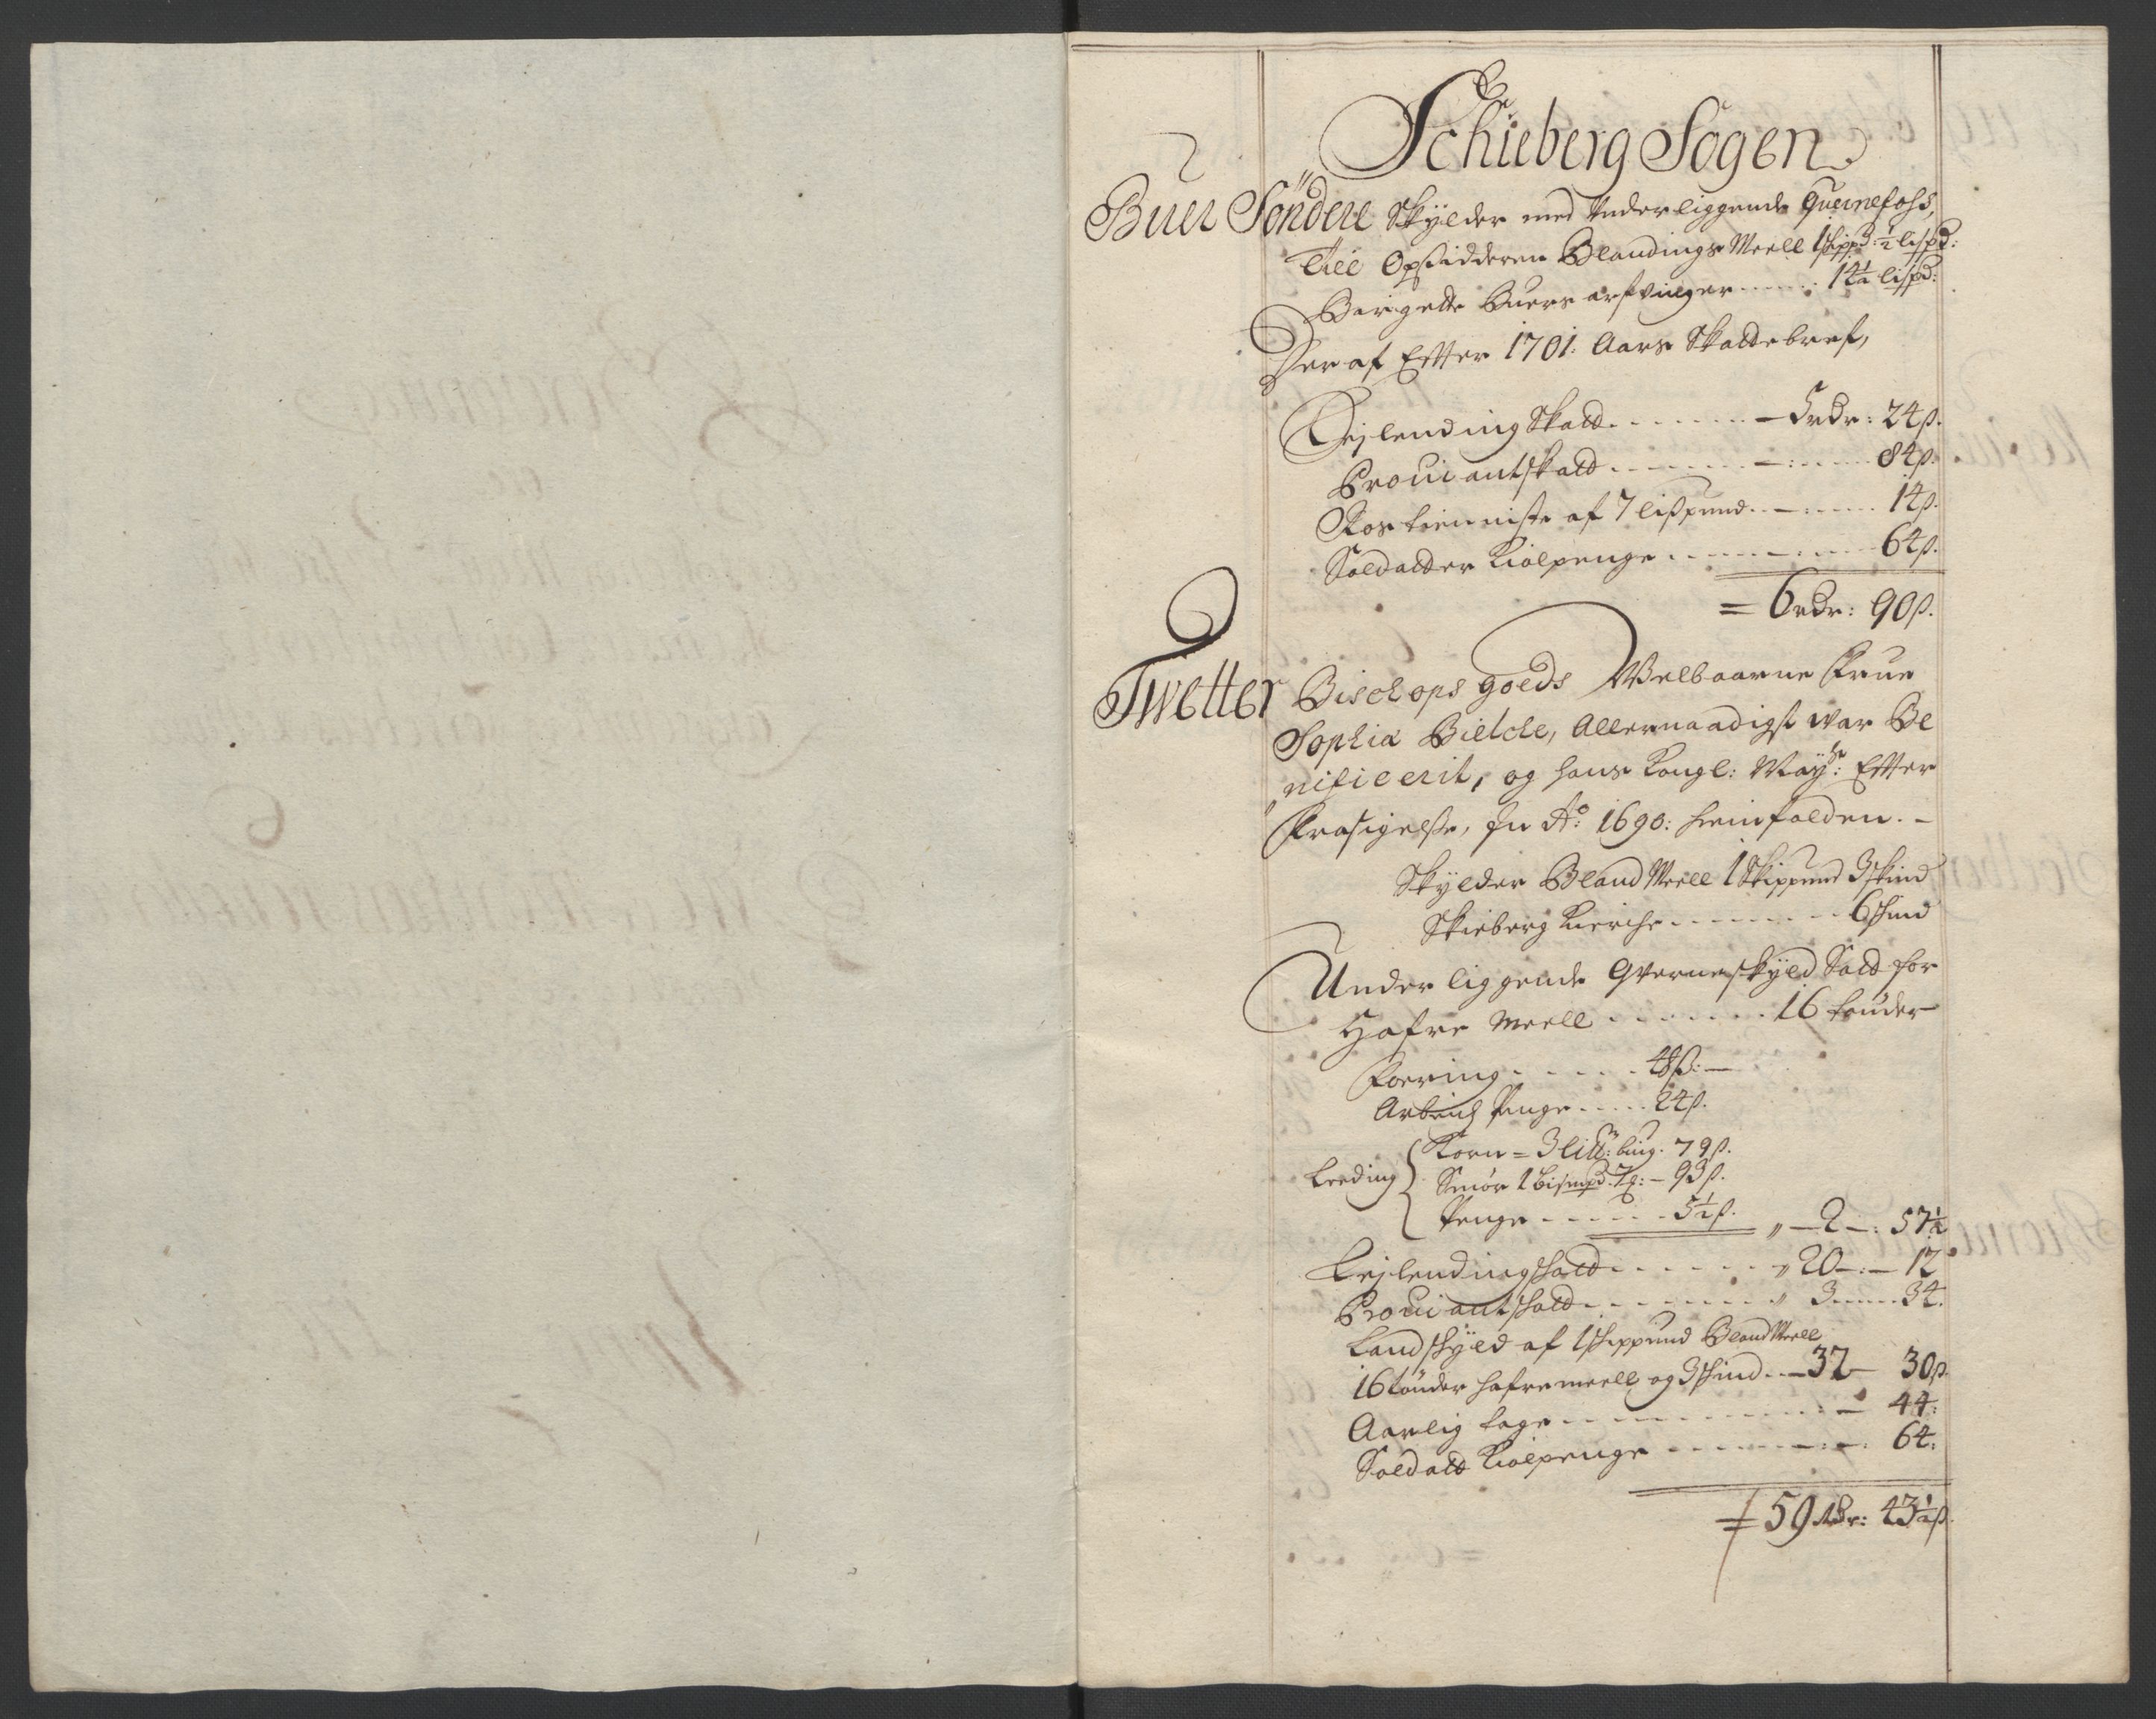 Schieberg Sogen
Buer Söndere Skÿlder med Underliggende Quernefoss,
till Opsidderen Blandings Meell 1 skippd: ½ lispd:
Birgette Buers arfvinger ----- 14½ lispd:
Her af Efter 1701: Aars Skattebref,
Leilending Skatt ------- 5 rdr: 24 ß.
Proviantskatt ------- 84 ß.
Ros tienniste af 7 lispund ------- 14 ß.
Soldatter Kiolpenge ------- 64 ß.
= 6 rdr: 90 ß.
Twetter Bischops goeds Welbaarne Frue
Sophia Bielche, Allernaadigst war Be
nificerit, og hans Kongl: Mayts: Efter
Frasigelse, In Ao: 1690: heimfalden. -
Skÿlder Bland Meell 1 Skippund 3 skind
Skieberg Kierche ------- 6 skind
Underliggende Qverneskÿld Satt for
Hafre Meell ------- 16 tønder
Foering ----- 48 ß: -
Arbeids Penge ----- 24 ß.
Leeding
Korn = 3 Litt: bing. 79 ß.
Smør 1 bismpd. 7 : - 93 ß.
Penge ------ 5½ ß. " - 2 -: 57½
Leilendingskatt ------ " 20 -:- 12
Proviantskatt ------- " 3 ---- 34.
Landskÿld af 1 skippund Bland Meell
16 tønder hafremeell og 3 skind -- 37 - 30 ß.
Aarlig tage ------- 44:
Soldatt Kiolpenge ------- 64:
= 59 Rdr: 43½ ß.